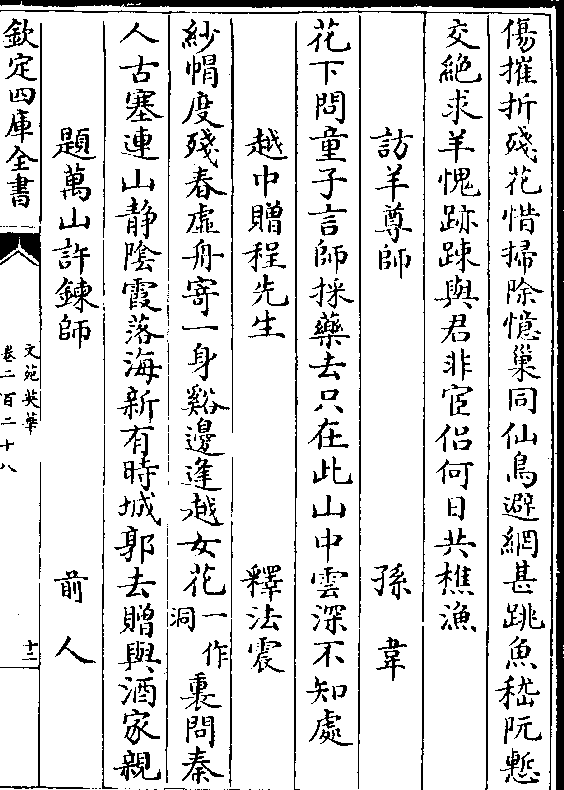 傷摧折殘花惜掃除憶巢同仙鳥避網甚跳魚嵇阮慙
交絶求羊愧跡踈與君非宦侣何日共樵漁
訪羊尊師 孫革
花下問童子言師採藥去只在此山中雲深不知處
越中贈程先生 釋法震
紗帽度殘春虚舟寄一身谿邊逢越女花一作洞裏問秦
人古塞連山静陰霞落海新有時城郭去贈與酒家親
題萬山許鍊師 前人
欽定四庫全書
文苑英華
卷二百二十八
十三